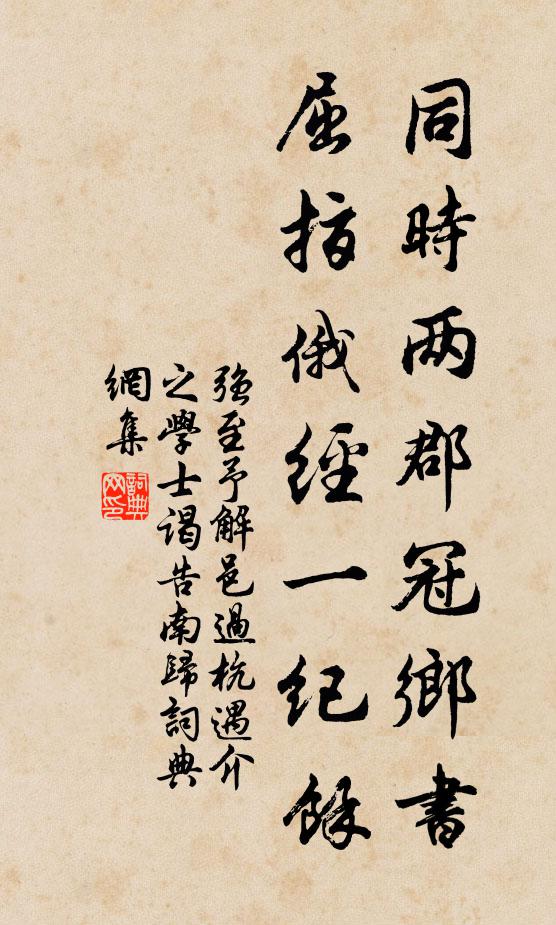 同時两郡冠鄉書
屈指俄經一紀餘
強至予解邑過杭遇介
之學士谒告南歸詞典
網集
詞典
网印